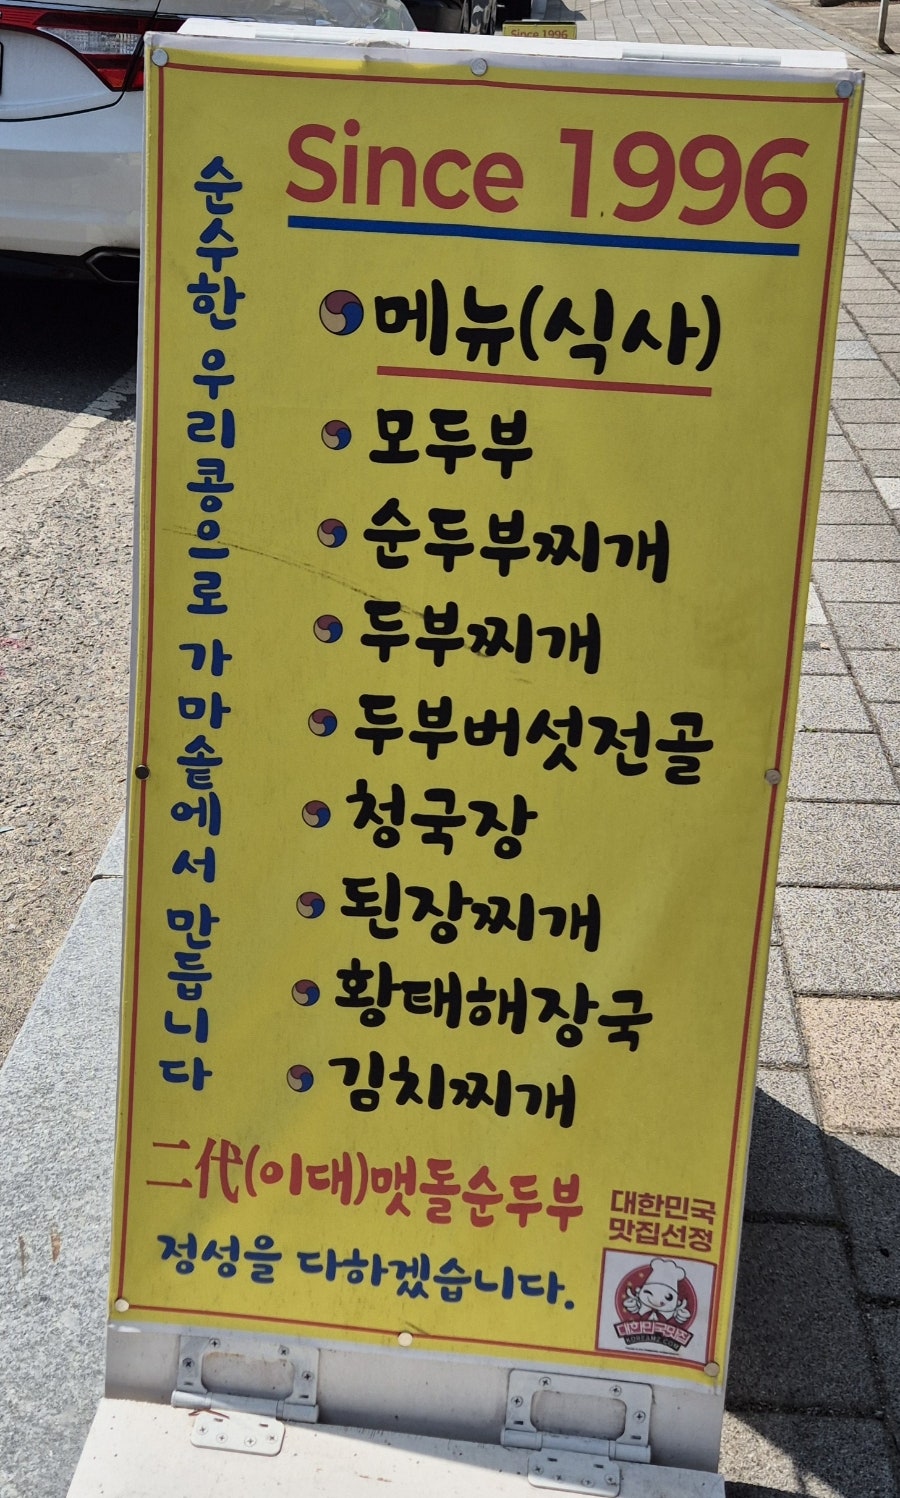 Since 1996
Since 1996
순수한 우리콩으로 가마솥에서 만듭니다
메뉴(식사)
모두부
순두부찌개
두부찌개
두부버섯전골
청국장
된장찌개
황태해장국
김치찌개
二代(이대)맷돌순두부
정성을 다하겠습니다.
대한민국
맛집선정
대한민국맛집